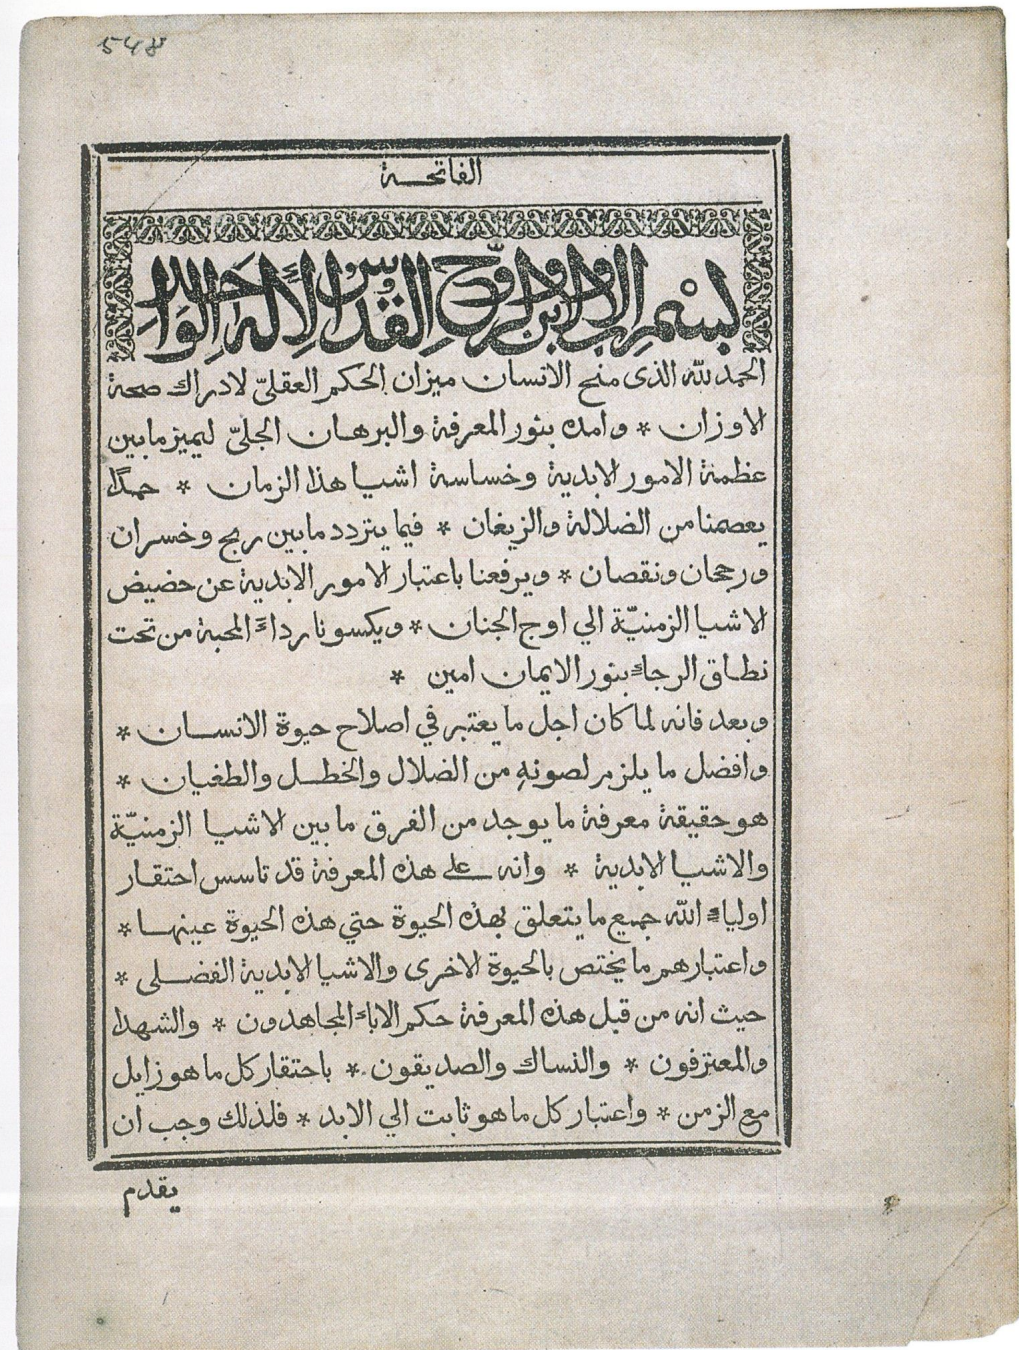 548
الفاتحة
بسم الاب والابن والروح القدس الاله الواحد
الحمد لله الذى منح الانسان ميزان الحكم العقلىّ لادراك صحة
الاوزان * وامده بنور المعرفة والبرهان الجلىّ ليميز ما بين
عظمة الامور الابدية وخساسة اشيا هذا الزمان * حمدًا
يعصمنا من الضلالة والزيغان * فيما يتردد ما بين ربح وخسران
ورجحان ونقصان * ويرفعنا باعتبار الامور الابدية عن حضيض
الاشيا الزمنيّة الي اوج الجنان * ويكسونا رداء المحبة من تحت
نطاق الرجاء بنور الايمان امين *
وبعد فانه لما كان اجل ما يعتبر في اصلاح حيوة الانسان *
وافضل ما يلزم لصونهِ من الضلال والخطل والطغيان *
هو حقيقة معرفة ما يوجد من الفرق ما بين الاشيا الزمنيّة
والاشيا الابدية * وانه على هذه المعرفة قد تاسس احتقار
اولياء الله جميع ما يتعلق بهذه الحيوة حتي هذه الحيوة عينها *
واعتبارهم ما يختص بالحيوة الاخرى والاشيا الابدية الفضلى *
حيث انه من قبل هذه المعرفة حكم الاباء المجاهدون * والشهدا
والمعترفون * والنساك والصديقون * باحتقار كل ما هو زايل
مع الزمن * واعتبار كل ما هو ثابت الي الابد * فلذلك وجب ان
يقدم